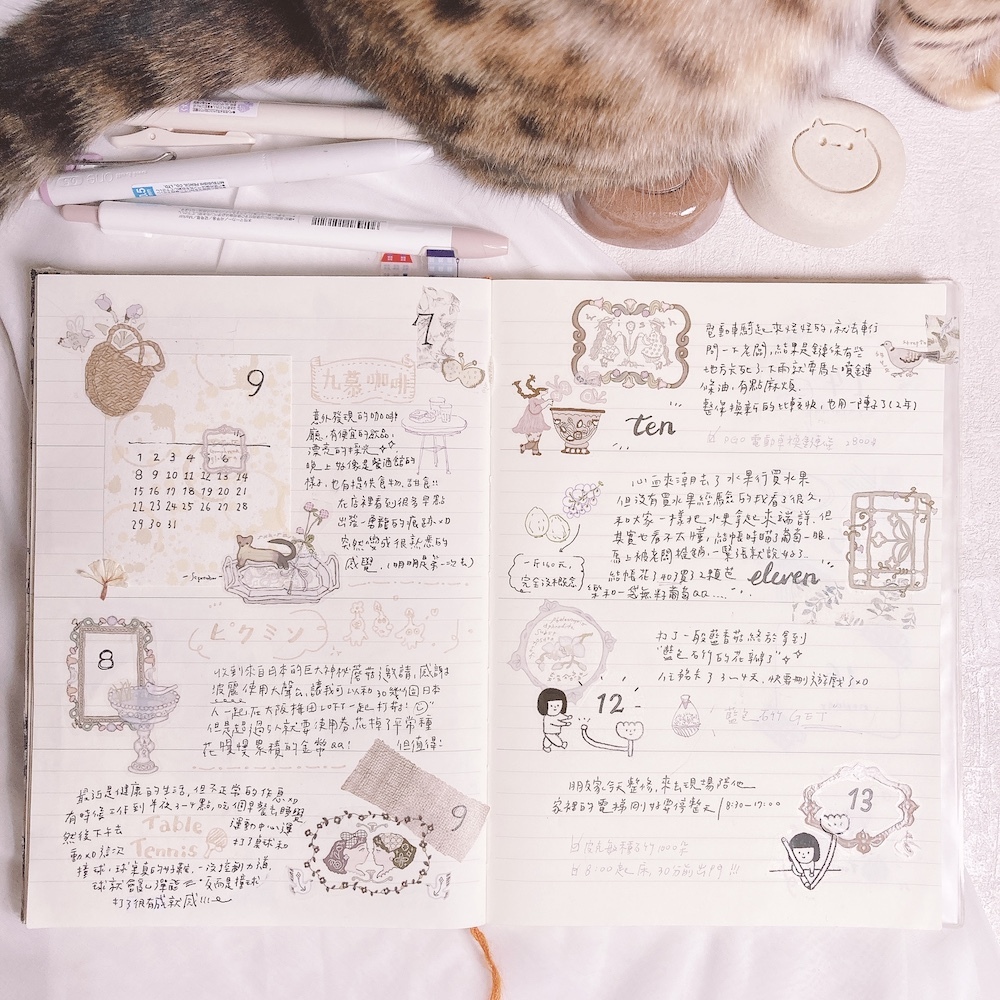 UNI-BALL ONE
MITSUBISHI PENCIL CO., LTD.
7
9
1 2 3 4 6
8 9 10 11 12 13 14
15 16 17 18 19 20 21
22 23 24 25 26 27 28
29 30 31
-September-
九慕咖啡
意外發現的咖啡
廳,有便宜的飲品,
漂亮的採光
晚上好像是餐酒館的
樣子,也有提供食物、甜食!!
在店裡看到很多早點
出發、離譜的痕跡xD
突然變成很熟悉的
感覺(明明是第一次去)
8
ピクミン
收到來自日本的巨大神秘蘑菇邀請,感謝
波麗使用大聲公,讓我可以和30幾個日本
人一起在大阪梅田LOFT一起打菇!
但是超過5人就要使用券,花掉了平常種
花慢慢累積的金幣QQ! 但值得!
最近是健康的生活,但不正常的作息xD
有時候工作到半夜3-4點,吃個早餐去睡覺
然後下午去
運動中心運
動xD 這次
打了桌球和
Table
Tennis
撞球,球
打了很有成就感!!!
9
電動車騎起來怪怪的,就去車行
問一下老闆,結果是鏈條有些
地方卡死了,大雨就要馬上噴鏈
條油,有點麻煩.
整條換新的比較快,也用一陣子了(2年)
ten
電動車換鏈條 2800
心血來潮去了水果行買水果
但沒有買水果經驗的我看了很久,
和大家一樣把水果拿起來端詳,但
其實也看不太懂,結帳時瞄了葡萄一眼,
馬上被老闆推銷,一緊張就說好了...
結帳花了403買了2顆芭
樂和一袋無籽葡萄QQ....
一斤160元,
完全沒概念
eleven
打了一般藍香菇終於拿到
"藍色石竹的花瓣了"
12
藍色石竹 GET
朋友家今天整修,來去現場陪他
家裡的電梯同時要停整天/8:30-17:00
13
8:00起床,30分前出門!!!